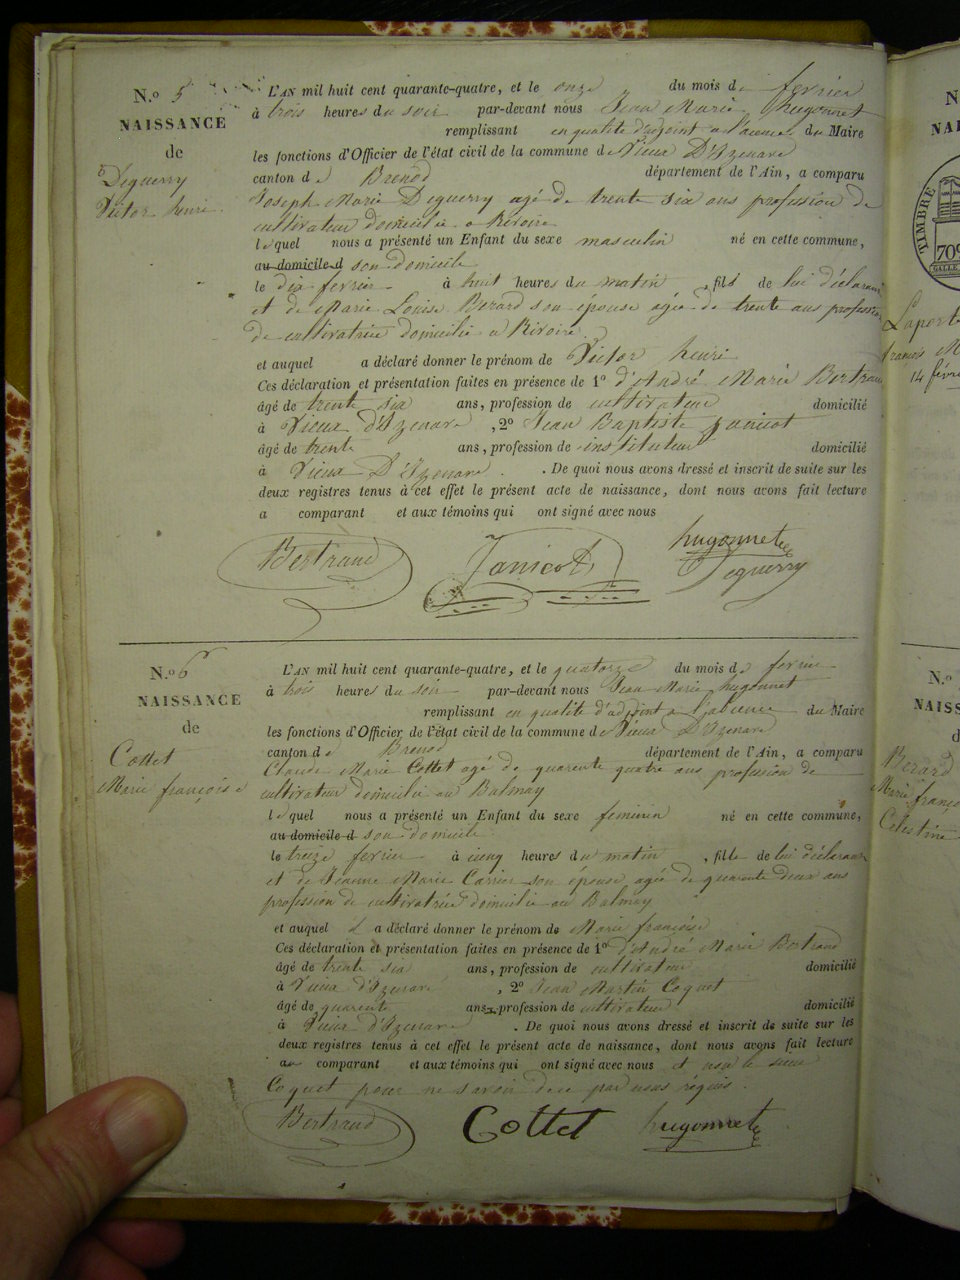 N.o 5
NAISSANCE
de
Déguerry
Victor henri
L'AN mil huit cent quarante-quatre, et le onze du mois de fevrier
à trois heures du soir par-devant nous Jean Marie hugonnet
remplissant en qualité d'adjoint a l'absence du Maire
les fonctions d'Officier de l'état civil de la commune de Vieux D'Izenave
canton de Brenod département de l'Ain, a comparu
Joseph Marie Deguerry agé de trente six ans profession de
cultivateur domicilié a Rivoire
lequel nous a présenté un Enfant du sexe masculin né en cette commune,
au domicile d son domicile
le dix fevrier à huit heures du matin, fils de lui déclarant
et de Marie Louise Berard son épouse agée de trente ans profession
de cultivatrice domicilié a Rivoire
et auquel a déclaré donner le prénom de Victor henri
Ces déclaration et présentation faites en présence de 1o d'André Marie Bertrand
âgé de trente six ans, profession de cultivateur domicilié
à Vieux d'Izenave, 2o Jean Baptiste Janicot
âgé de trente ans, profession de instituteur domicilié
à Vieux D'Izenave. De quoi nous avons dressé et inscrit de suite sur les
deux registres tenus à cet effet le présent acte de naissance, dont nous avons fait lecture
a comparant et aux témoins qui ont signé avec nous
Bertrand Janicot hugonnet
Deguerry
N.o 6
NAISSANCE
de
Cottet
Marie françoise
L'AN mil huit cent quarante-quatre, et le quatorze du mois de fevrier
à trois heures du soir par-devant nous Jean Marie hugonnet
remplissant en qualité d'adjoint a l'absence du Maire
les fonctions d'Officier de l'état civil de la commune de Vieux D'Izenave
canton de Brenod département de l'Ain, a comparu
Claude Marie Cottet agé de quarente quatre ans profession de
cultivateur domicilié au Balmay
lequel nous a présenté un Enfant du sexe feminin né en cette commune,
au domicile d son domicile
le treize fevrier à cinq heures du matin, fille de lui déclarant
et de Jeanne Marie Carrier son épouse agée de quarente deux ans
profession de cultivatrice domicilié au Balmay
et auquel il a déclaré donner le prénom de Marie françoise
Ces déclaration et présentation faites en présence de 1o d'André Marie Bertrand
âgé de trente six ans, profession de cultivateur domicilié
à Vieux d'Izenave, 2o Jean Martin Coquet
âgé de quarente ans, profession de cultivateur domicilié
à Vieux d'Izenave. De quoi nous avons dressé et inscrit de suite sur les
deux registres tenus à cet effet le présent acte de naissance, dont nous avons fait lecture
au comparant et aux témoins qui ont signé avec nous et non le sieur
Coquet pour ne savoir de ce par nous requis.
Bertrand Cottet hugonnet
N
NAI
TIMBRE
70
Laport
françois M
14 févri
N.o
NAISS
d
Berard
Marie franço
Celestine